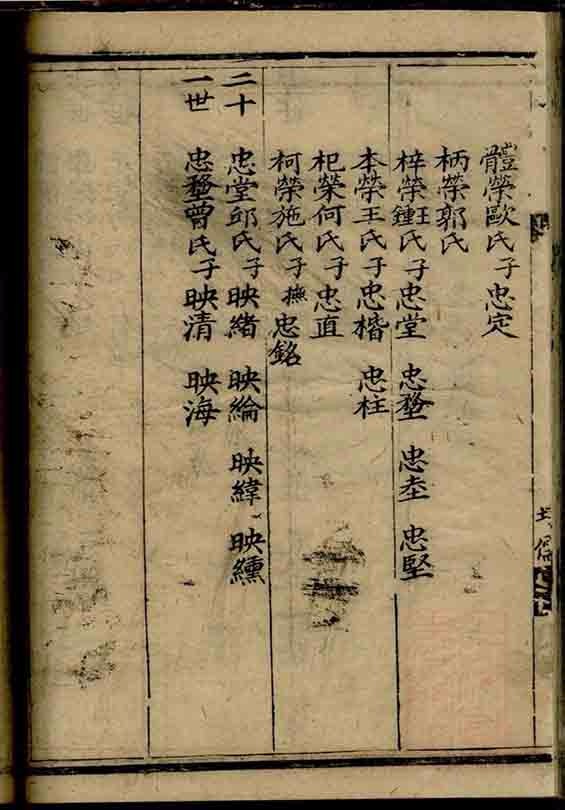 體榮歐氏子忠定
柄榮郭氏
梓榮鍾王氏子忠堂 忠 忠 忠堅
本榮王氏子忠楷 忠柱
杞榮何氏子忠直
柯榮施氏子撫忠銘
二十
一世
忠堂邱氏子映緒 映綸 映緯 映纁
忠曾氏子映清 映海